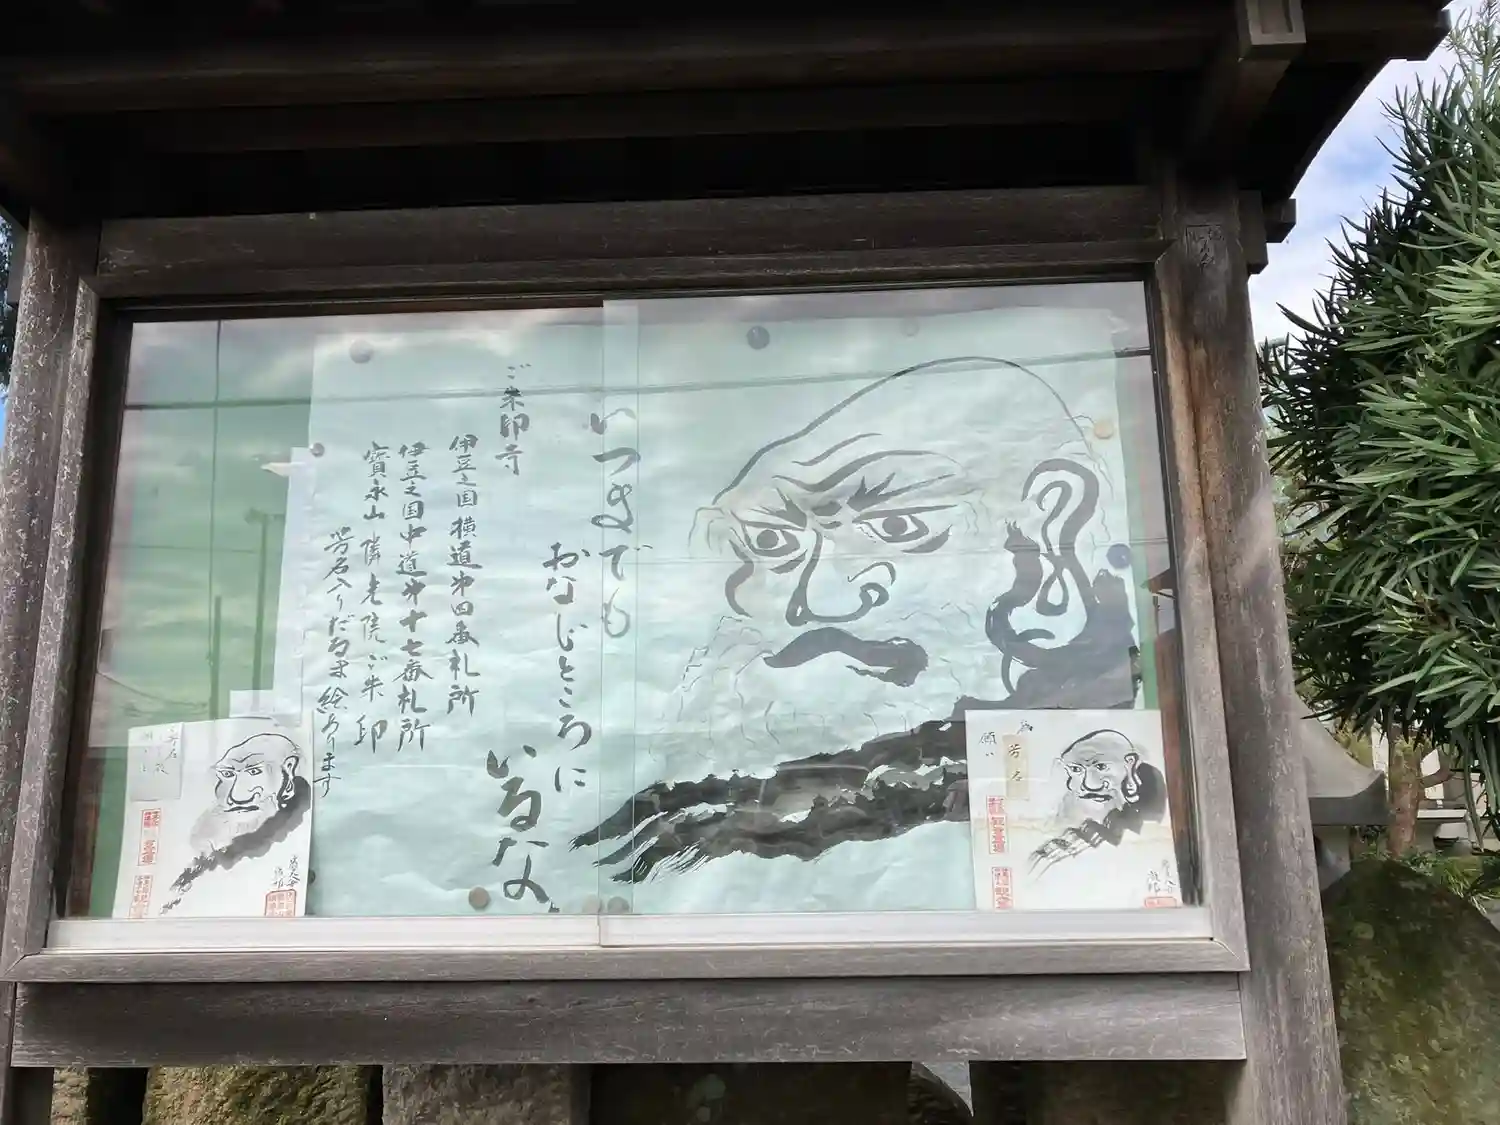 いつまでも
おなじところに
いるなよ
ご朱印寺
伊豆之国横道第四番札所
伊豆之国中道第十七番札所
寶永山 隣老院ご朱印
芳名入りだるま絵あります
為
芳名
願い